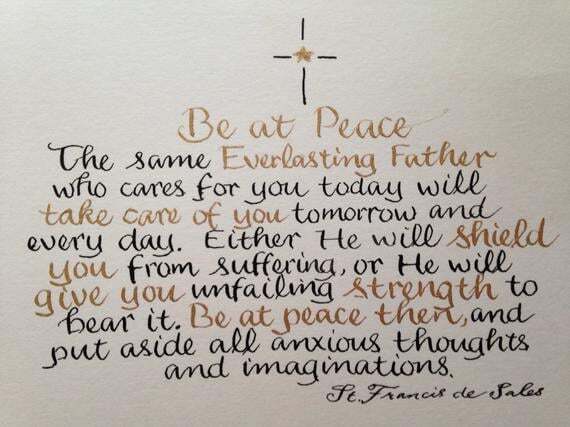 Be at Peace
The same Everlasting Father
who cares for you today will
take care of you tomorrow and
every day. Either He will shield
you from suffering, or He will
give you unfailing strength to
bear it. Be at peace then, and
put aside all anxious thoughts
and imaginations.
St. Francis de Sales